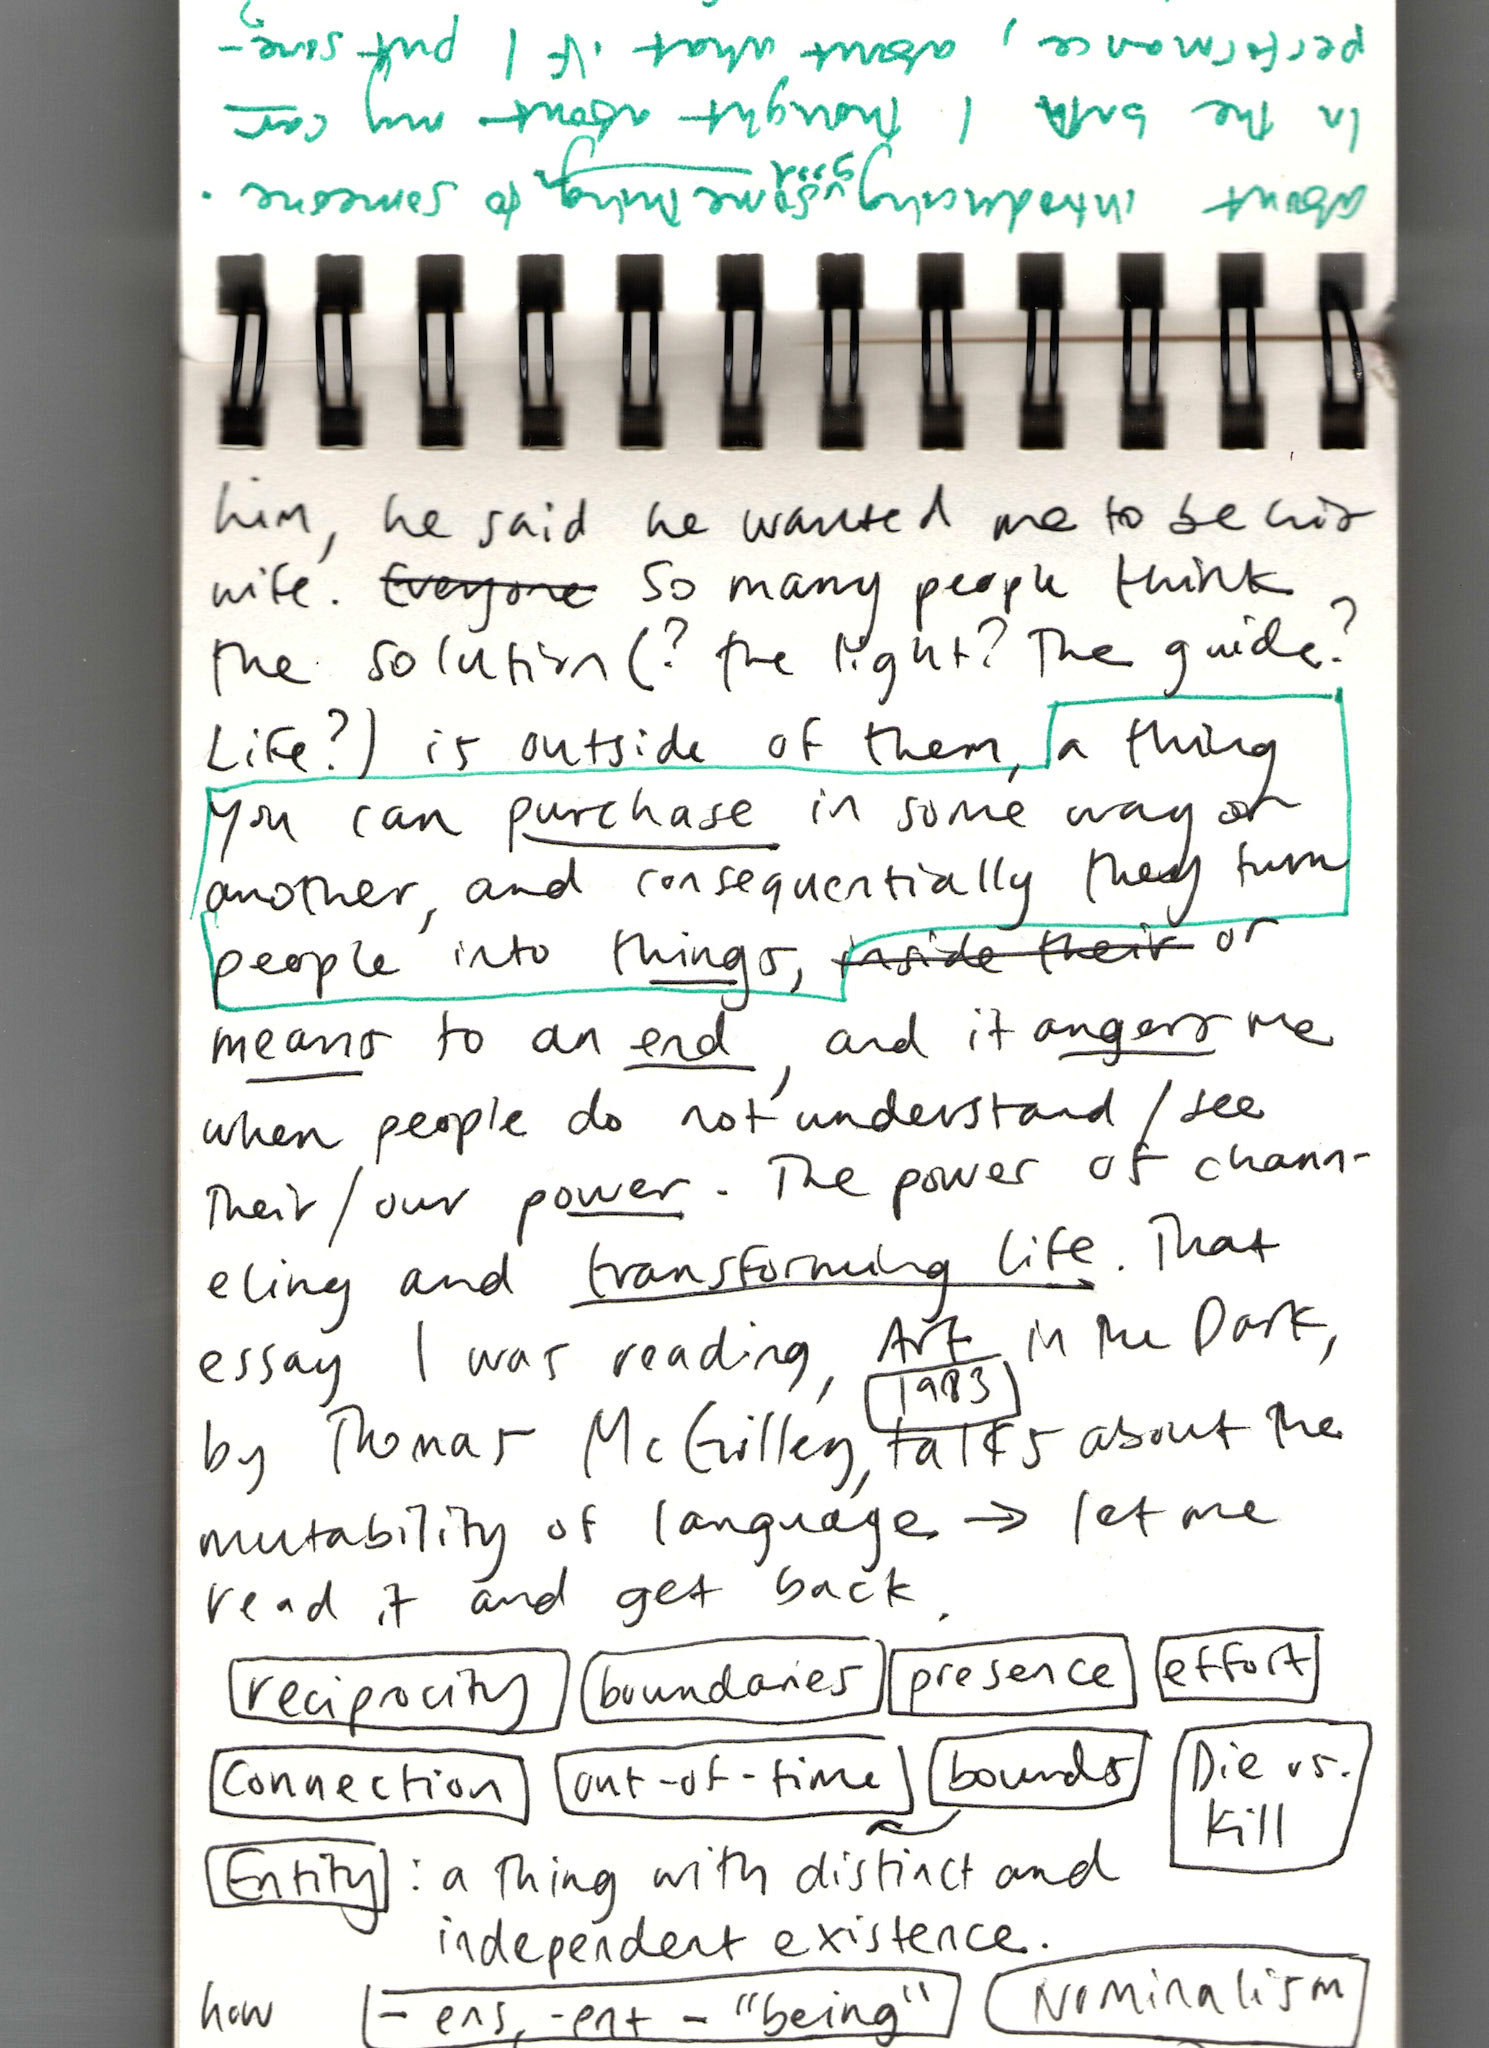 about introducing something to someone.
good
In the bath I thought about my car
performance, about what if I put some-
him, he said he wanted me to be his
wife. Everyone So many people think
the solution (? the light? The guide?
Life?) is outside of them, a thing
you can purchase in some way or
another, and consequentially they turn
people into things, inside their or
means to an end, and it angers me
when people do not understand / see
their / our power. The power of chann-
eling and transforming life. That
essay I was reading, Art in the Dark,
1983
by Thomas McGilley, talks about the
mutability of language → let me
read it and get back.
reciprocity boundaries presence effort
Connection out-of-time bounds Die vs.
Kill
Entity : a thing with distinct and
independent existence.
how - ens, -ent - "being" Nominalism